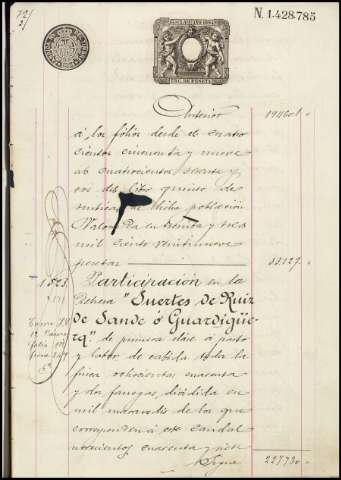 N. 1.428.785
Anterior 194601
á los fólios desde el cuatro
cientos cincuenta y nueve
al cuatrocientos sesenta y
dos del libro quinto de
rústicas de dicha población
Valorada en treinta y tres
mil ciento veintinueve
pesetas 33129
Participación en la
Dehesa "Suertes de Ruiz
de Sande ó Guardigüe
ra" de primera clase á pasto
y labor de cabida toda la
finca ochocientas cuarenta
y dos fanegas, dividida en
mil maravedis de los que
corresponden á este caudal
novecientos cuarenta y siete
Sigue 227730